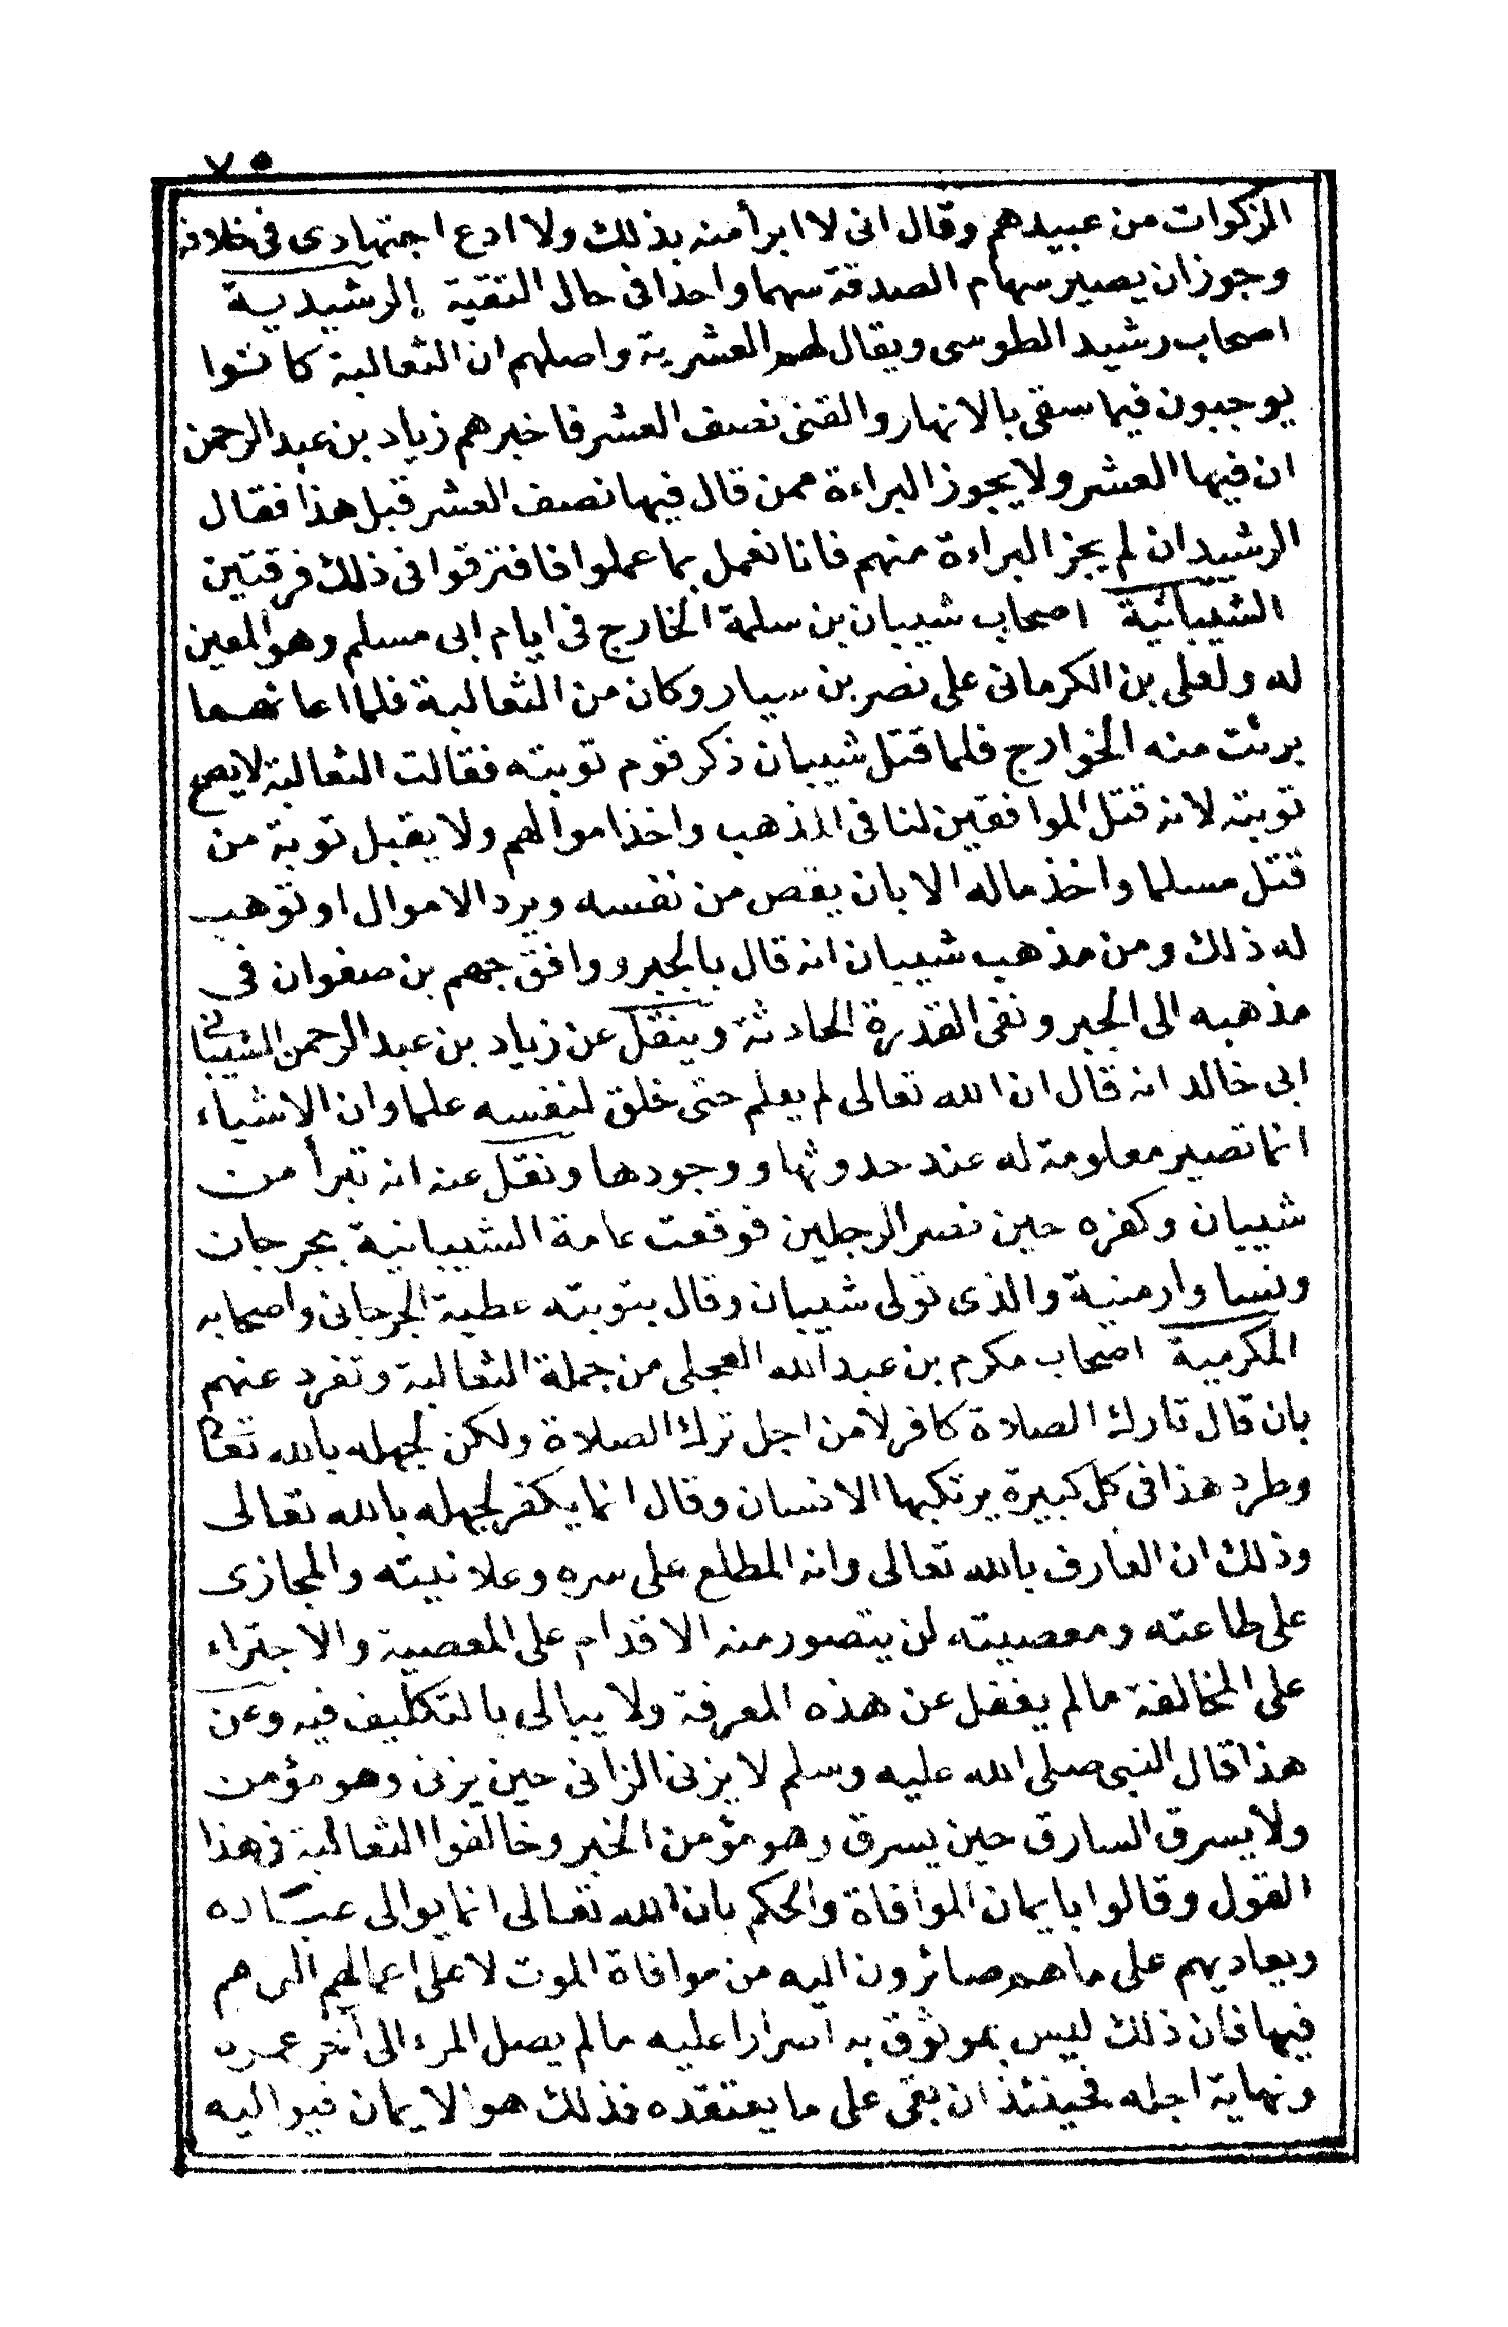 ٧٥
الزكوات من عبيدهم وقال انى لا ابرأ منه بذلك ولا ادع اجتهادى فى خلافه
وجوز ان يصير سهام الصدقة سهما واحدا فى حال التقية الرشيدية
اصحاب رشيد الطوسى ويقال لهم العشرية واصلهم ان الثعالبة كانوا
يوجبون فيما سقى بالانهار والقنى نصف العشر فاخبرهم زياد بن عبد الرحمن
ان فيها العشر ولا يجوز البراءة ممن قال فيها نصف العشر قبل هذا فقال
الرشيد ان لم يجز البراءة منهم فانا نعمل بما عملوا فافترقوا فى ذلك فرقتين
الشيبانية اصحاب شيبان بن سلمة الخارج فى ايام ابى مسلم وهو المعين
له ولعلى بن الكرمانى على نصر بن سيار وكان من الثعالبة فلما اعانهما
برئت منه الخوارج فلما قتل شيبان ذكر قوم توبته فقالت الثعالبة لا يصح
توبته لانه قتل الموافقين لنا فى المذهب واخذ اموالهم ولا يقبل توبة من
قتل مسلما واخذ ماله الا بان يقص من نفسه ويرد الاموال او توهب
له ذلك ومن مذهب شيبان انه قال بالجبر ووافق جهم بن صفوان فى
مذهبه الى الجبر ونفى القدرة الحادثة وينقل عن زياد بن عبد الرحمن الشيبانى
ابى خالد انه قال ان الله تعالى لم يعلم حتى خلق لنفسه علما وان الاشياء
انما تصير معلومة له عند حدوثها ووجودها ونقل عنه انه تبرأ من
شيبان وكفره حين نصر الرجلين فوقعت عامة الشيبانية بجرجان
ونسا وارمنية والذى تولى شيبان وقال بتوبته عطية الجرجانى واصحابه
المكرمية اصحاب مكرم بن عبد الله العجلى من جملة الثعالبة وتفرد عنهم
بان قال تارك الصلاة كافر لا من اجل ترك الصلاة ولكن لجهله بالله تعا
وطرد هذا فى كل كبيرة يرتكبها الانسان وقال انما يكفر لجهله بالله تعالى
وذلك ان العارف بالله تعالى وانه المطلع على سره وعلانيته والمجازى
على طاعته ومعصيته لن يتصور منه الاقدام على المعصية والاجتراء
على المخالفة ما لم يغفل عن هذه المعرفة ولا يبالى بالتكليف فيه وعن
هذا قال النبى صلى الله عليه وسلم لا يزنى الزانى حين يزنى وهو مؤمن
ولا يسرق السارق حين يسرق وهو مؤمن الخبر وخالفوا الثعالبة فى هذا
القول وقالوا بايمان الموافاة والحكم بان الله تعالى انما يوالى عباده
ويعاديهم على ما هم صائرون اليه من موافاة الموت لا على اعمالهم التى هم
فيها فان ذلك ليس بموثوق به اسرارا عليه ما لم يصل المرء الى آخر عمره
ونهاية اجله فحينئذ ان بقى على ما يعتقده فذلك هو الايمان فيواليه